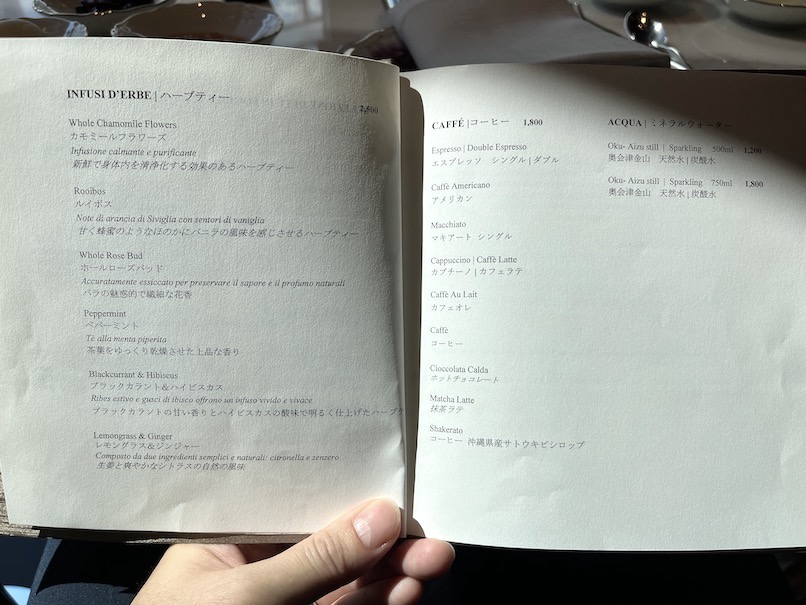 INFUSI D'ERBE | ハーブティー
Whole Chamomile Flowers
カモミールフラワーズ
Infusione calmante e purificante
新鮮で身体内を清浄化する効果のあるハーブティー
Rooibos
ルイボス
Note di arancia di Siviglia con sentori di vaniglia
甘く蜂蜜のようなほのかにバニラの風味を感じさせるハーブティー
Whole Rose Bud
ホールローズバッド
Accuratamente essiccato per preservare il sapore e il profumo naturali
バラの魅惑的で繊細な花香
Peppermint
ペパーミント
Tè alla menta piperita
茶葉をゆっくり乾燥させた上品な香り
Blackcurrant & Hibiscus
ブラックカラント＆ハイビスカス
Ribes estivo e guaci di ibisco offrono un infuso vivido e vivace
ブラックカラントの甘い香りとハイビスカスの酸味で明るく仕上げたハーブテ
Lemongrass & Ginger
レモングラス＆ジンジャー
Composto da due ingredienti semplici e naturali: citronella e zenzero
生姜と爽やかなシトラスの自然の風味
CAFFÉ | コーヒー 1,800
Espresso | Double Espresso
エスプレッソ シングル | ダブル
Caffè Americano
アメリカン
Macchiato
マキアート シングル
Cappuccino | Caffè Latte
カプチーノ | カフェラテ
Caffè Au Lait
カフェオレ
Caffè
コーヒー
Cioccolata Calda
ホットチョコレート
Matcha Latte
抹茶ラテ
Shakerato
コーヒー 沖縄県産サトウキビシロップ
ACQUA | ミネラルウォーター
Oku- Aizu still | Sparkling 500ml 1,200
奥会津金山 天然水 | 炭酸水
Oku- Aizu still | Sparkling 750ml 1,800
奥会津金山 天然水 | 炭酸水